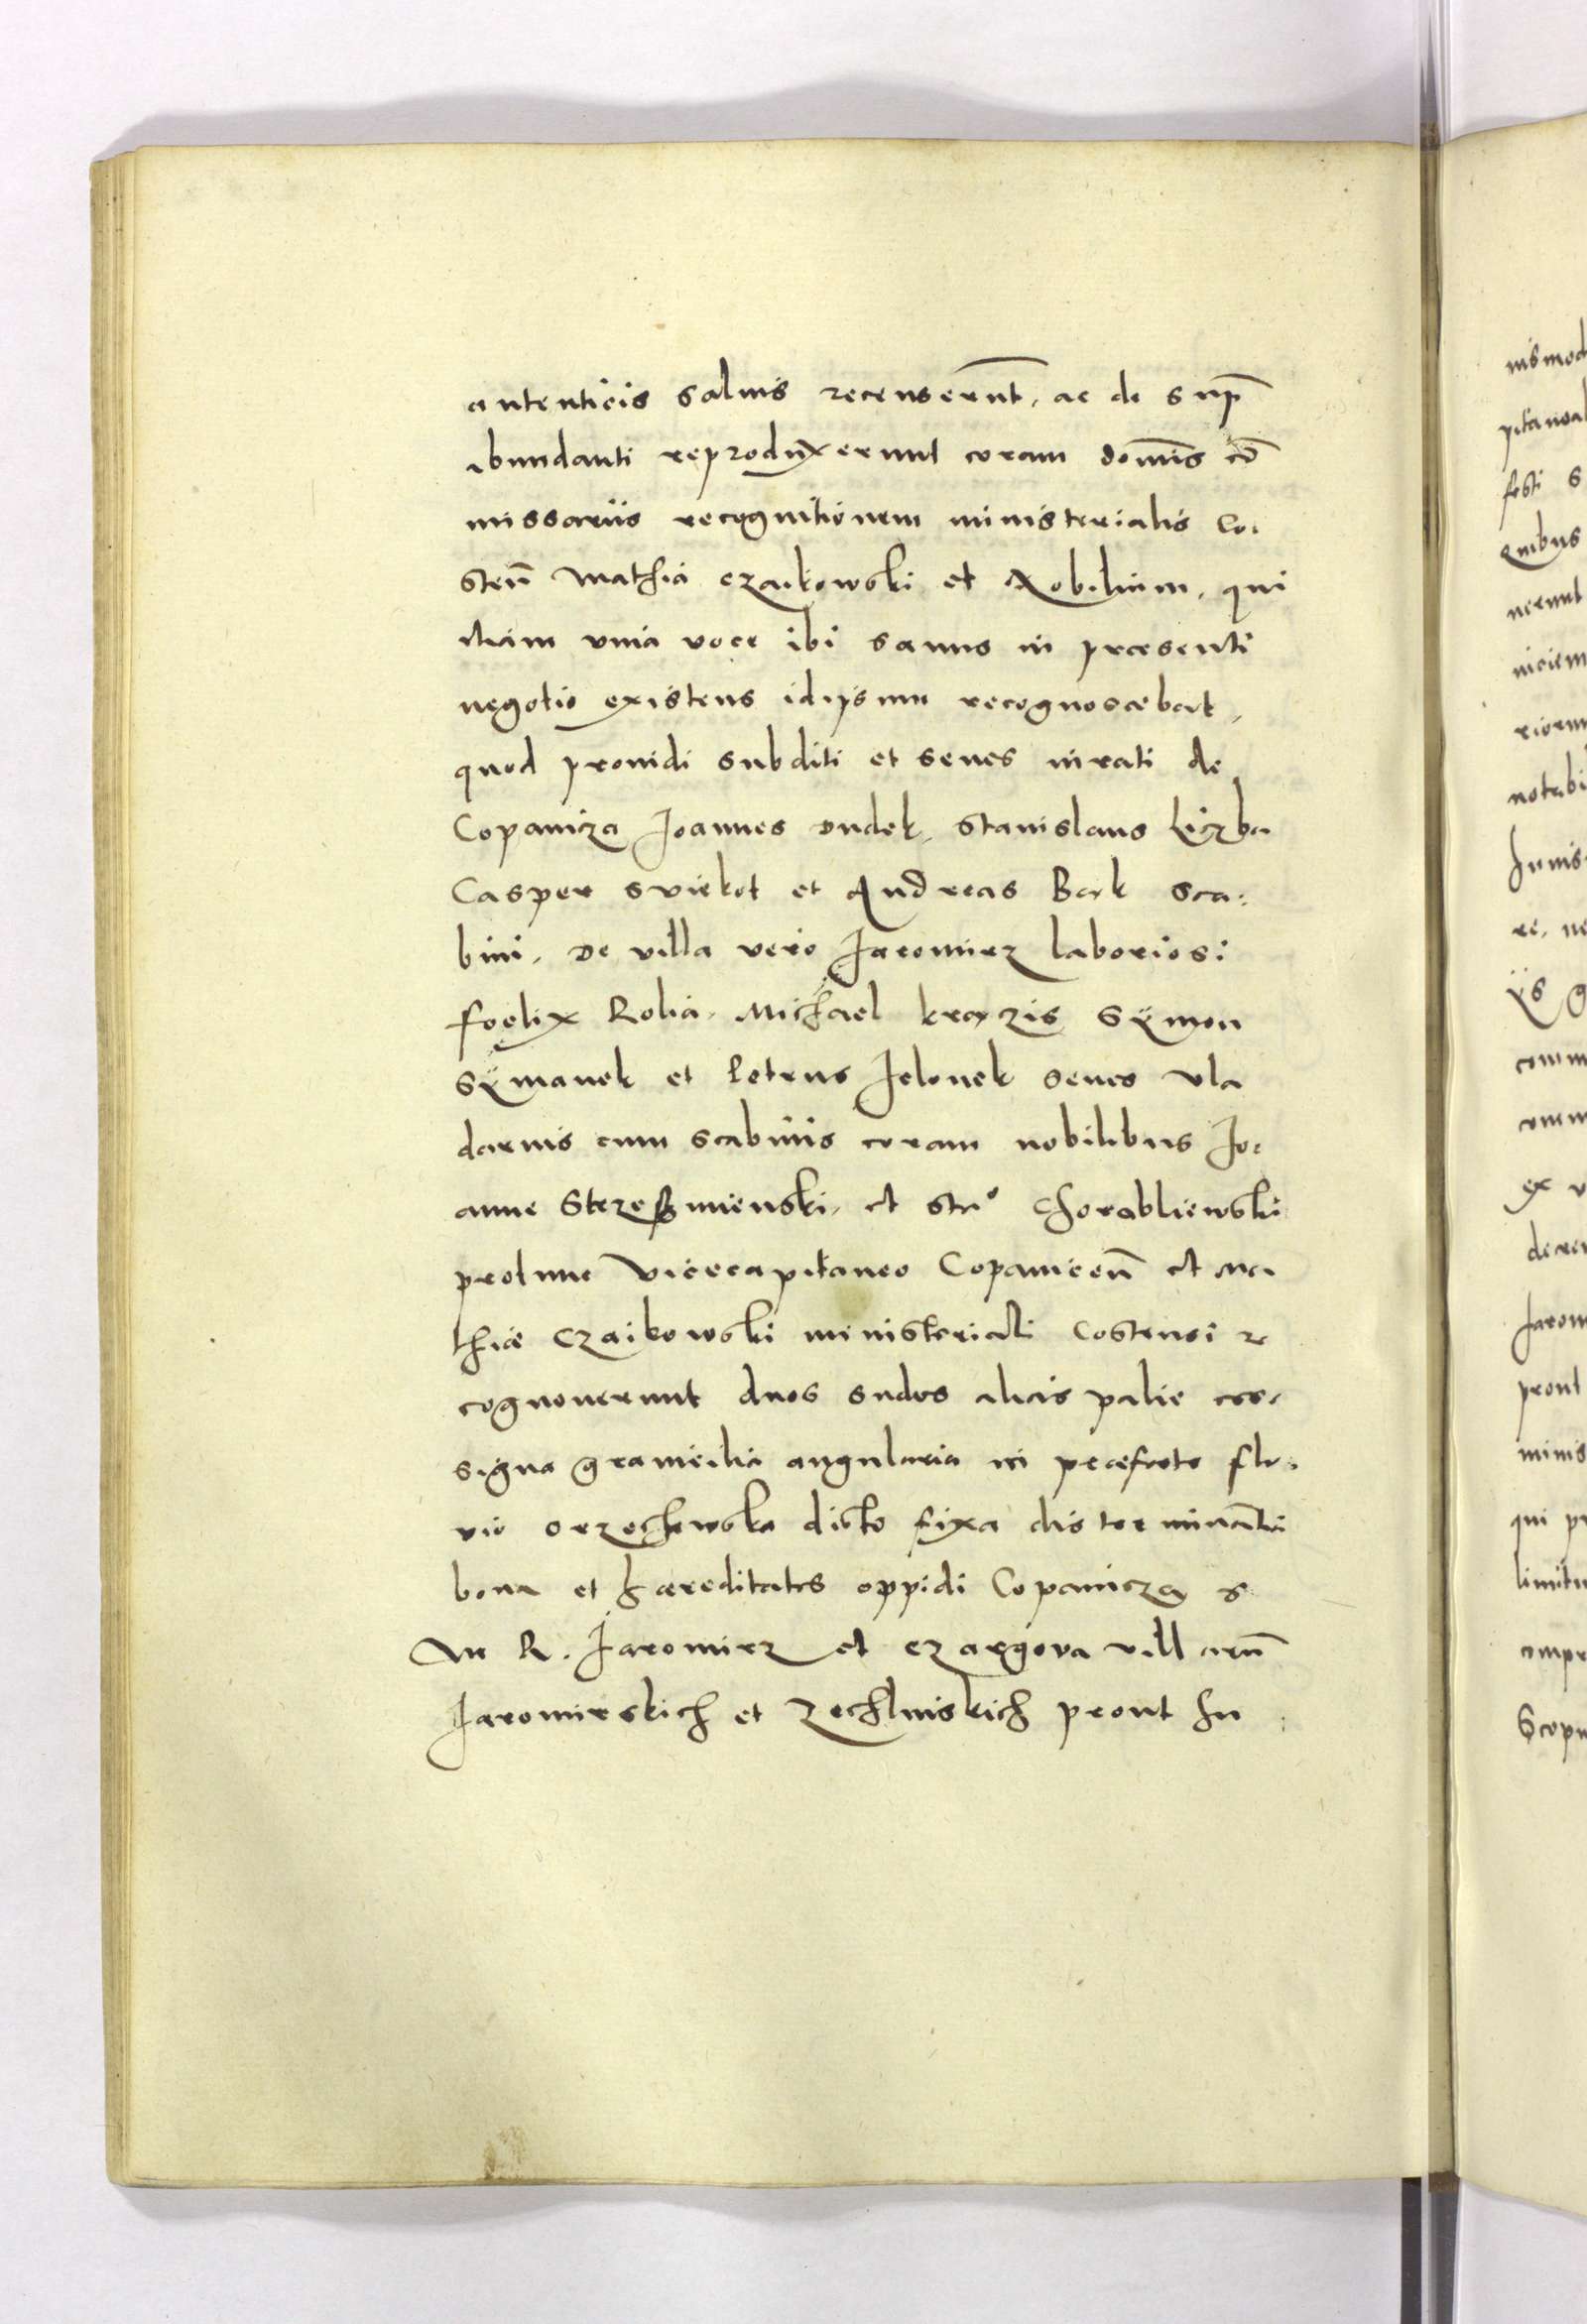 autenticis salvis recenserunt, ac de sup̄
abundanti reproduxerunt coram domīs cō
missariis recognitionem ministerialis Co.
steñ Mathia Czaikowski et Nobilium, qui
etiam unia voce ibi sanus in praesenti
negotio existens idipsum recognoscebat,
quod providi subditi et senes iurati de
Copanicza Joannes Dudek, Stanislaus Liczba
Casper Sviekot et Andreas Bark sca:
bini, De villa vero Jaromirz laboriosi
Foelix Rolia, Michael Kraxzis Sÿmon
Sÿmanek et Petrus Jelonek senes vla
darius cum scabinis coram nobilibus Jo:
anne Strzeßmienski, et Stan° Chorabliewski
protunc Vicecapitaneo Copaniceñ et Ma.
thiae Czaikowski ministeriali Costensi re
cognoverunt duos sudes alias palie
signa graniciha angularia in praefato flu.
vio Orzechowska dicto fixa disterminantia
bona et haereditates oppidi Copanicza S
M R. Jaromirz et Czargova villarū
Jaromirskich et Zechliniskich prout hu